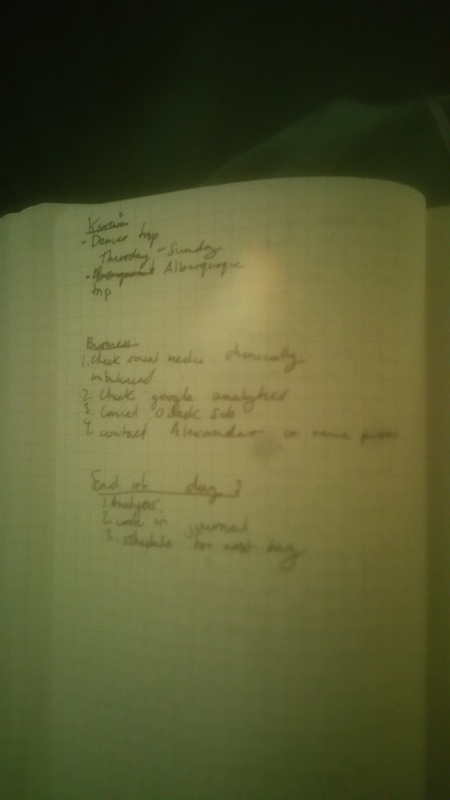 - Denver trip
Thursday - Sunday
Albuquerque
trip
Business
1. Check social media chemically
imbalanced
2. Check google analytics
3. Cancel
4. contact Alexander or
End of day
1. Analysis
2. write in journal
3. schedule for next day